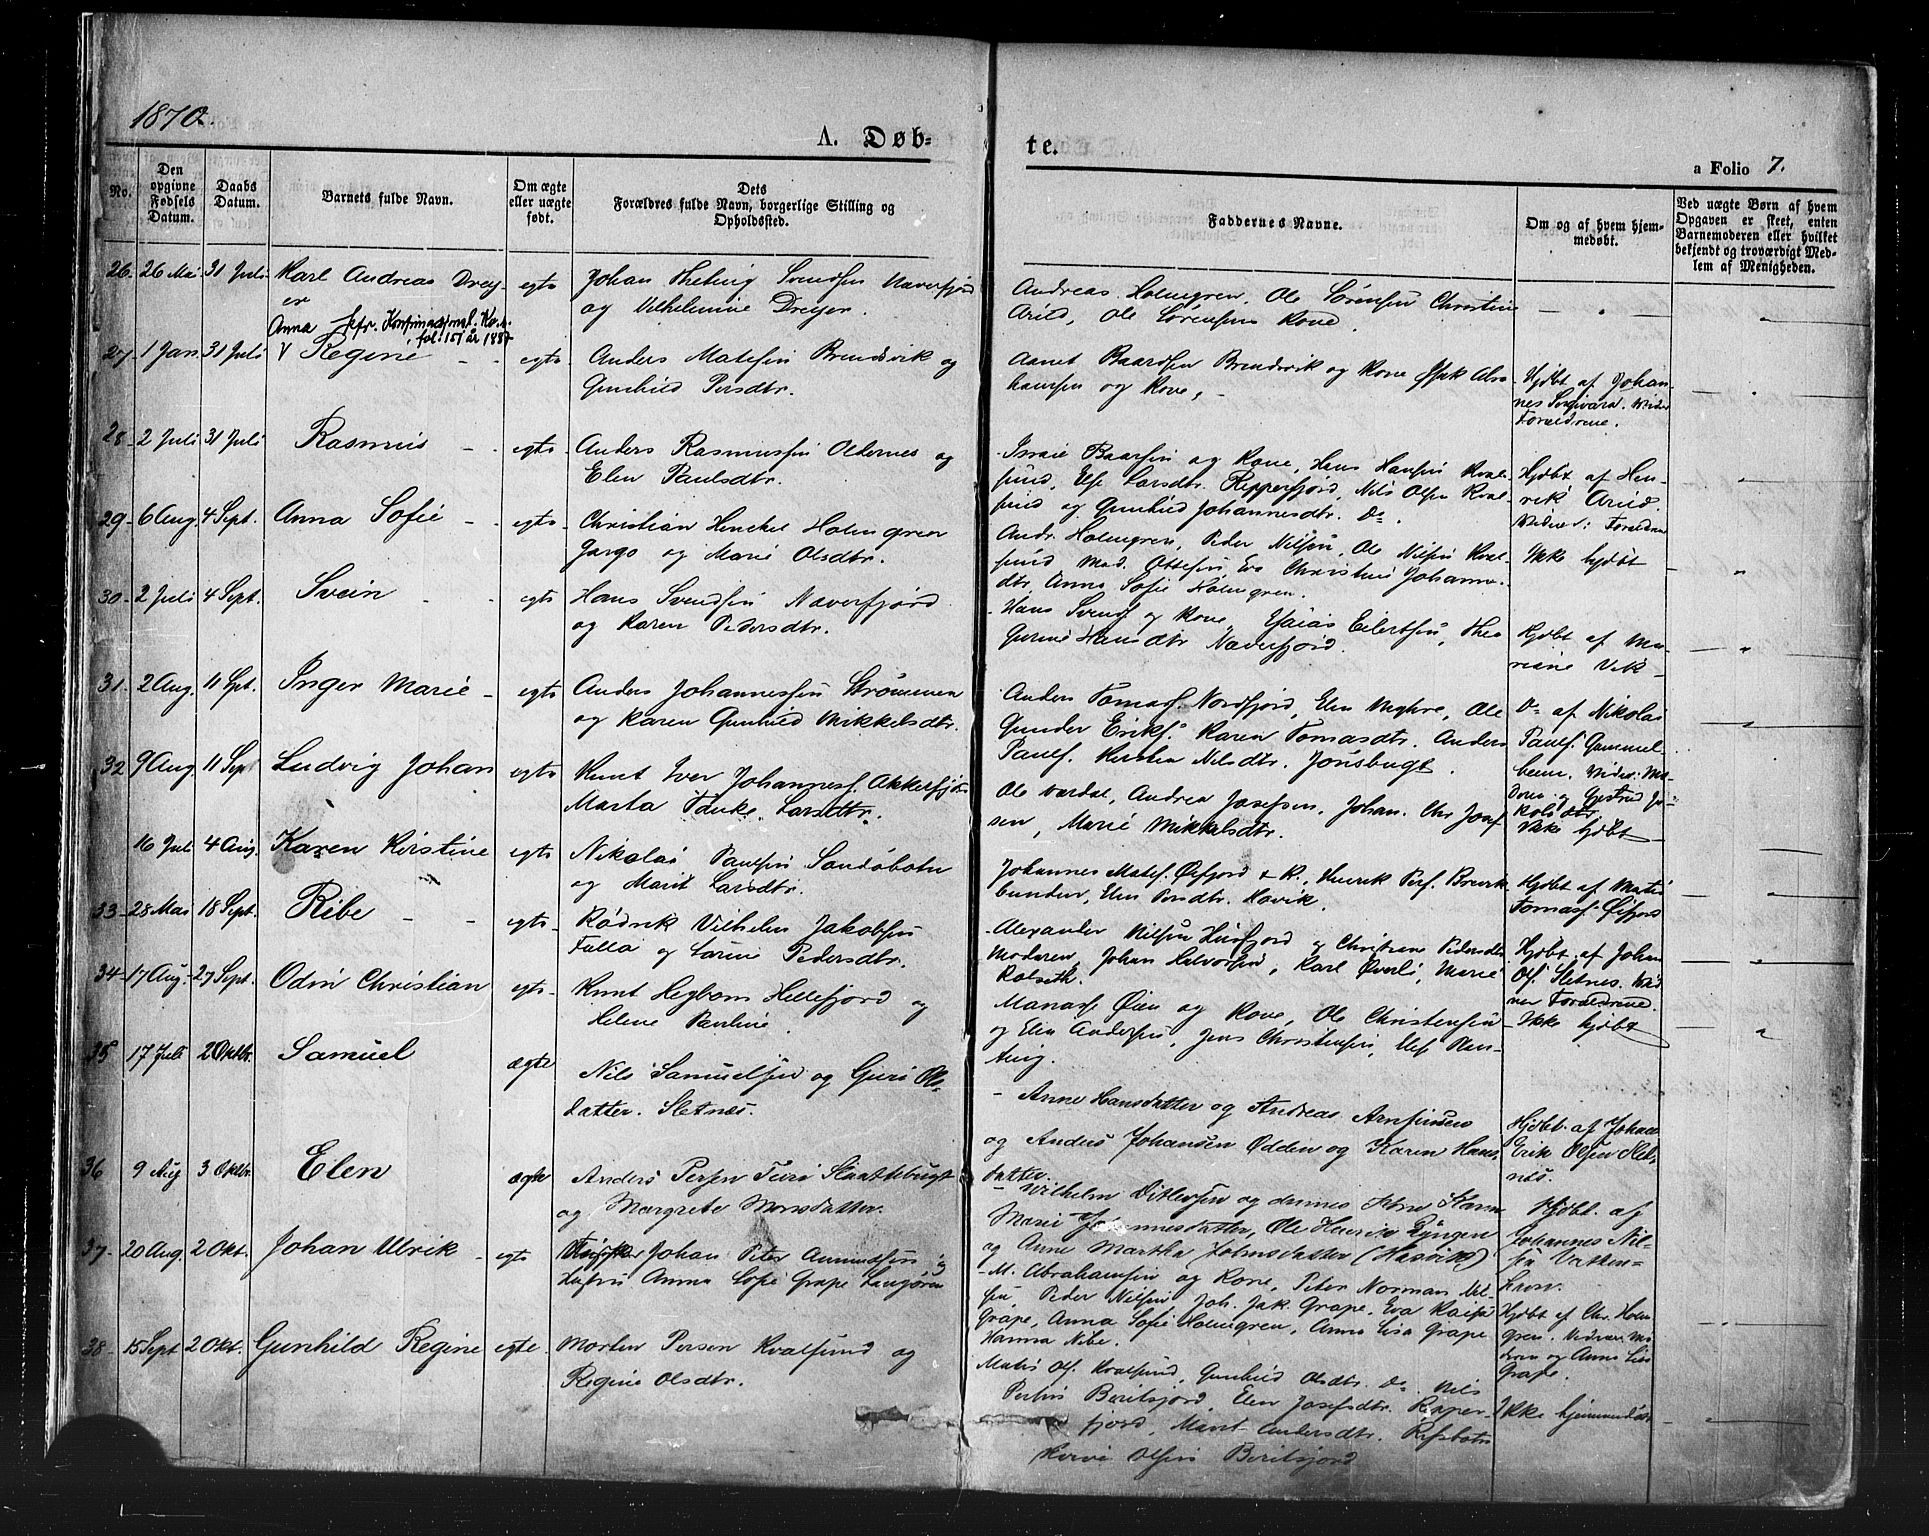 1870.
A. Døb=
te.
a Folio 7.
No.
Den opgivne Fødsels Datum.
Daabs Datum.
Barnets fulde Navn.
Om ægte eller uægte født.
Dets
Forældres fulde Navn, borgerlige Stilling og
Opholdssted.
Faddernes Navne.
Om og af hvem hjem-
medøbt.
Ved uægte Børn af hvem
Opgaven er skeet, enten
Barnemoderen eller hvilket
bekjendt og troværdigt Med-
lem af Menigheden.
26. 26 Mai 31 Juli Karl Andreas Drey-
er
egte Johan Svendsen Naverfjord
og Vilhelmine Dreyer.
Andreas Holmgren, Ole Sørensen Christine
Arild, Ole Sørensens Kone.
Anna
fol. 151 år 1887
27- 1 Jan. 31 Juli Regine - - egte Anders Matesen Brendsvik og
Gunhild Persdtr.
Baardsen Brendsvik og Kone Abra
hamsen og Kone,
Hjdbt af Johan-
nes
Forældrene.
28- 2 Juli 31 Juli Rasmus - - egte Anders Rasmussen Oldernes og
Elen Paulsdtr.
og Kone, Hans Hansen Kval-
sund, Larsdtr. Repperfjord, Nils Olsen Kval
sund og Gunhild Johannesdtr. Do.
Hjdbt af Hen-
rik Arild.
Forældrene
29- 6 Aug. 4 Sept. Anna Sofie - - egte Christian Henckel Holmgreen
Jargo og Marie Olsdtr.
Andr. Holmgren, Peder Nilsen, Ole Nilsen Kval-
sund Mad. Ottesen Eva Christine Johann-
dtr. Anna Sofie Holmgren.
Ikke hjdbt
30- 2 Juli 4 Sept. Svein - - egte Hans Svendsen Naverfjord
og Karen Pedersdtr.
Hans Svends. og Kone, Esaias Eilertsen, Thea
Hansdtr Naverfjord.
Hjdbt af Ma-
riane Vik -
31- 2 Aug. 11 Spt. Inger Marie - egte Anders Johannessen Strømmen
og Karen Gunhild Mikkelsdtr.
Anders Tomass. Nordfjord, Elen Ole
Gunder Eriks. Karen Tomasdtr. Anders
Pauls. Kirsten Nilsdtr. Jonsbugt.
Do af Nikolai
Pauls.
32 9 Aug 11 Sep Ludvig Johan egte Knut Iver Johanness. Akkerfjord
Marta Larsdtr.
Ole Værdal, Andrea Josefsen, Johan Chr. Josef-
sen, Marie Mikkelsdtr.
Ikke hjdbt
16 Jul 4 Aug. Karen Kirstine egte Nikolai Paulsen Sandøbotn
og Marit Larsdtr.
Johannes Mates. Øifjord + K., Henrik Pers.
Elen Persdtr. Havik.
Hjdbt af
Tomass. Øifjord
33- 28 Mai 18 Sept. Ribe - - egte- Rødrik Vilhelm Jakobsen
Falla og Larine Pedersdtr.
Alexander Nilsen og Christian Pedersdtr
Moderen, Johan Halvorsen, Karl Øverli, Marie
Rolseth.
Hjdbt. af Johan
Ols. Sletnes.
Forældrene.
34- 17 Aug. 27 Sept. Odin Christian egte- Knut Hegbom Hellefjord og
Helene Pauline.
Manass Øien og Kone, Ole Christensen
og Elen Andersen, Jens Christensen,
Ikke hjdbt
35 17 Juli 2 Oktbr. Samuel ægte Nils Samuelsen og Guri Ols-
datter. Sletnes.
- Anne Hansdatter og Andreas Arnsinsen
og Anders Johansen Odden og Karen Hans-
datter.
Hjdbt. af Johan
Erik Olsen Slet-
nes.
36 9 Aug 3 Oktbr. Elen ægte Anders Persen Turi Skaattebugt
og Margrete Monsdatter.
- Vilhelm Ditlevsen og dennes Kone Karen
Marie Johannesdatter, Ole Henrik Lyngen
og Anne Martha Johnsdatter (Hasvik)
Hjdbt. af
Johannes Nil-
sen
37- 20 Aug. 2 Okt. Johan Ulrik - egte Johan Peter Amundsen og
Hustru Anna Sofie Grape
- M. Abrahamsen og Kone, Peter Norman Nil-
sen Peder Nilsen Joh. Jak Grape, Eva
Grape, Anna Sofie Holmgren, Anna Lisa Grape
Hanna Nibe.
Hjdbt af Chr. Holm
gren. Vidner Mo
deren og Anna Lisa
Grape.
38- 15 Sept 2 Okt. Gunhild Regine egte Morten Persen Kvalsund og
Regine Olsdtr.
Matis Ols. Kvalsund, Gunhild Olsdtr. Do Nils
Persen Beritsfjord, Elen Josefsdtr. Repper-
fjord, Marit Andersdtr.
Olsen Beritsfjord
Ikke hjemmedøbt